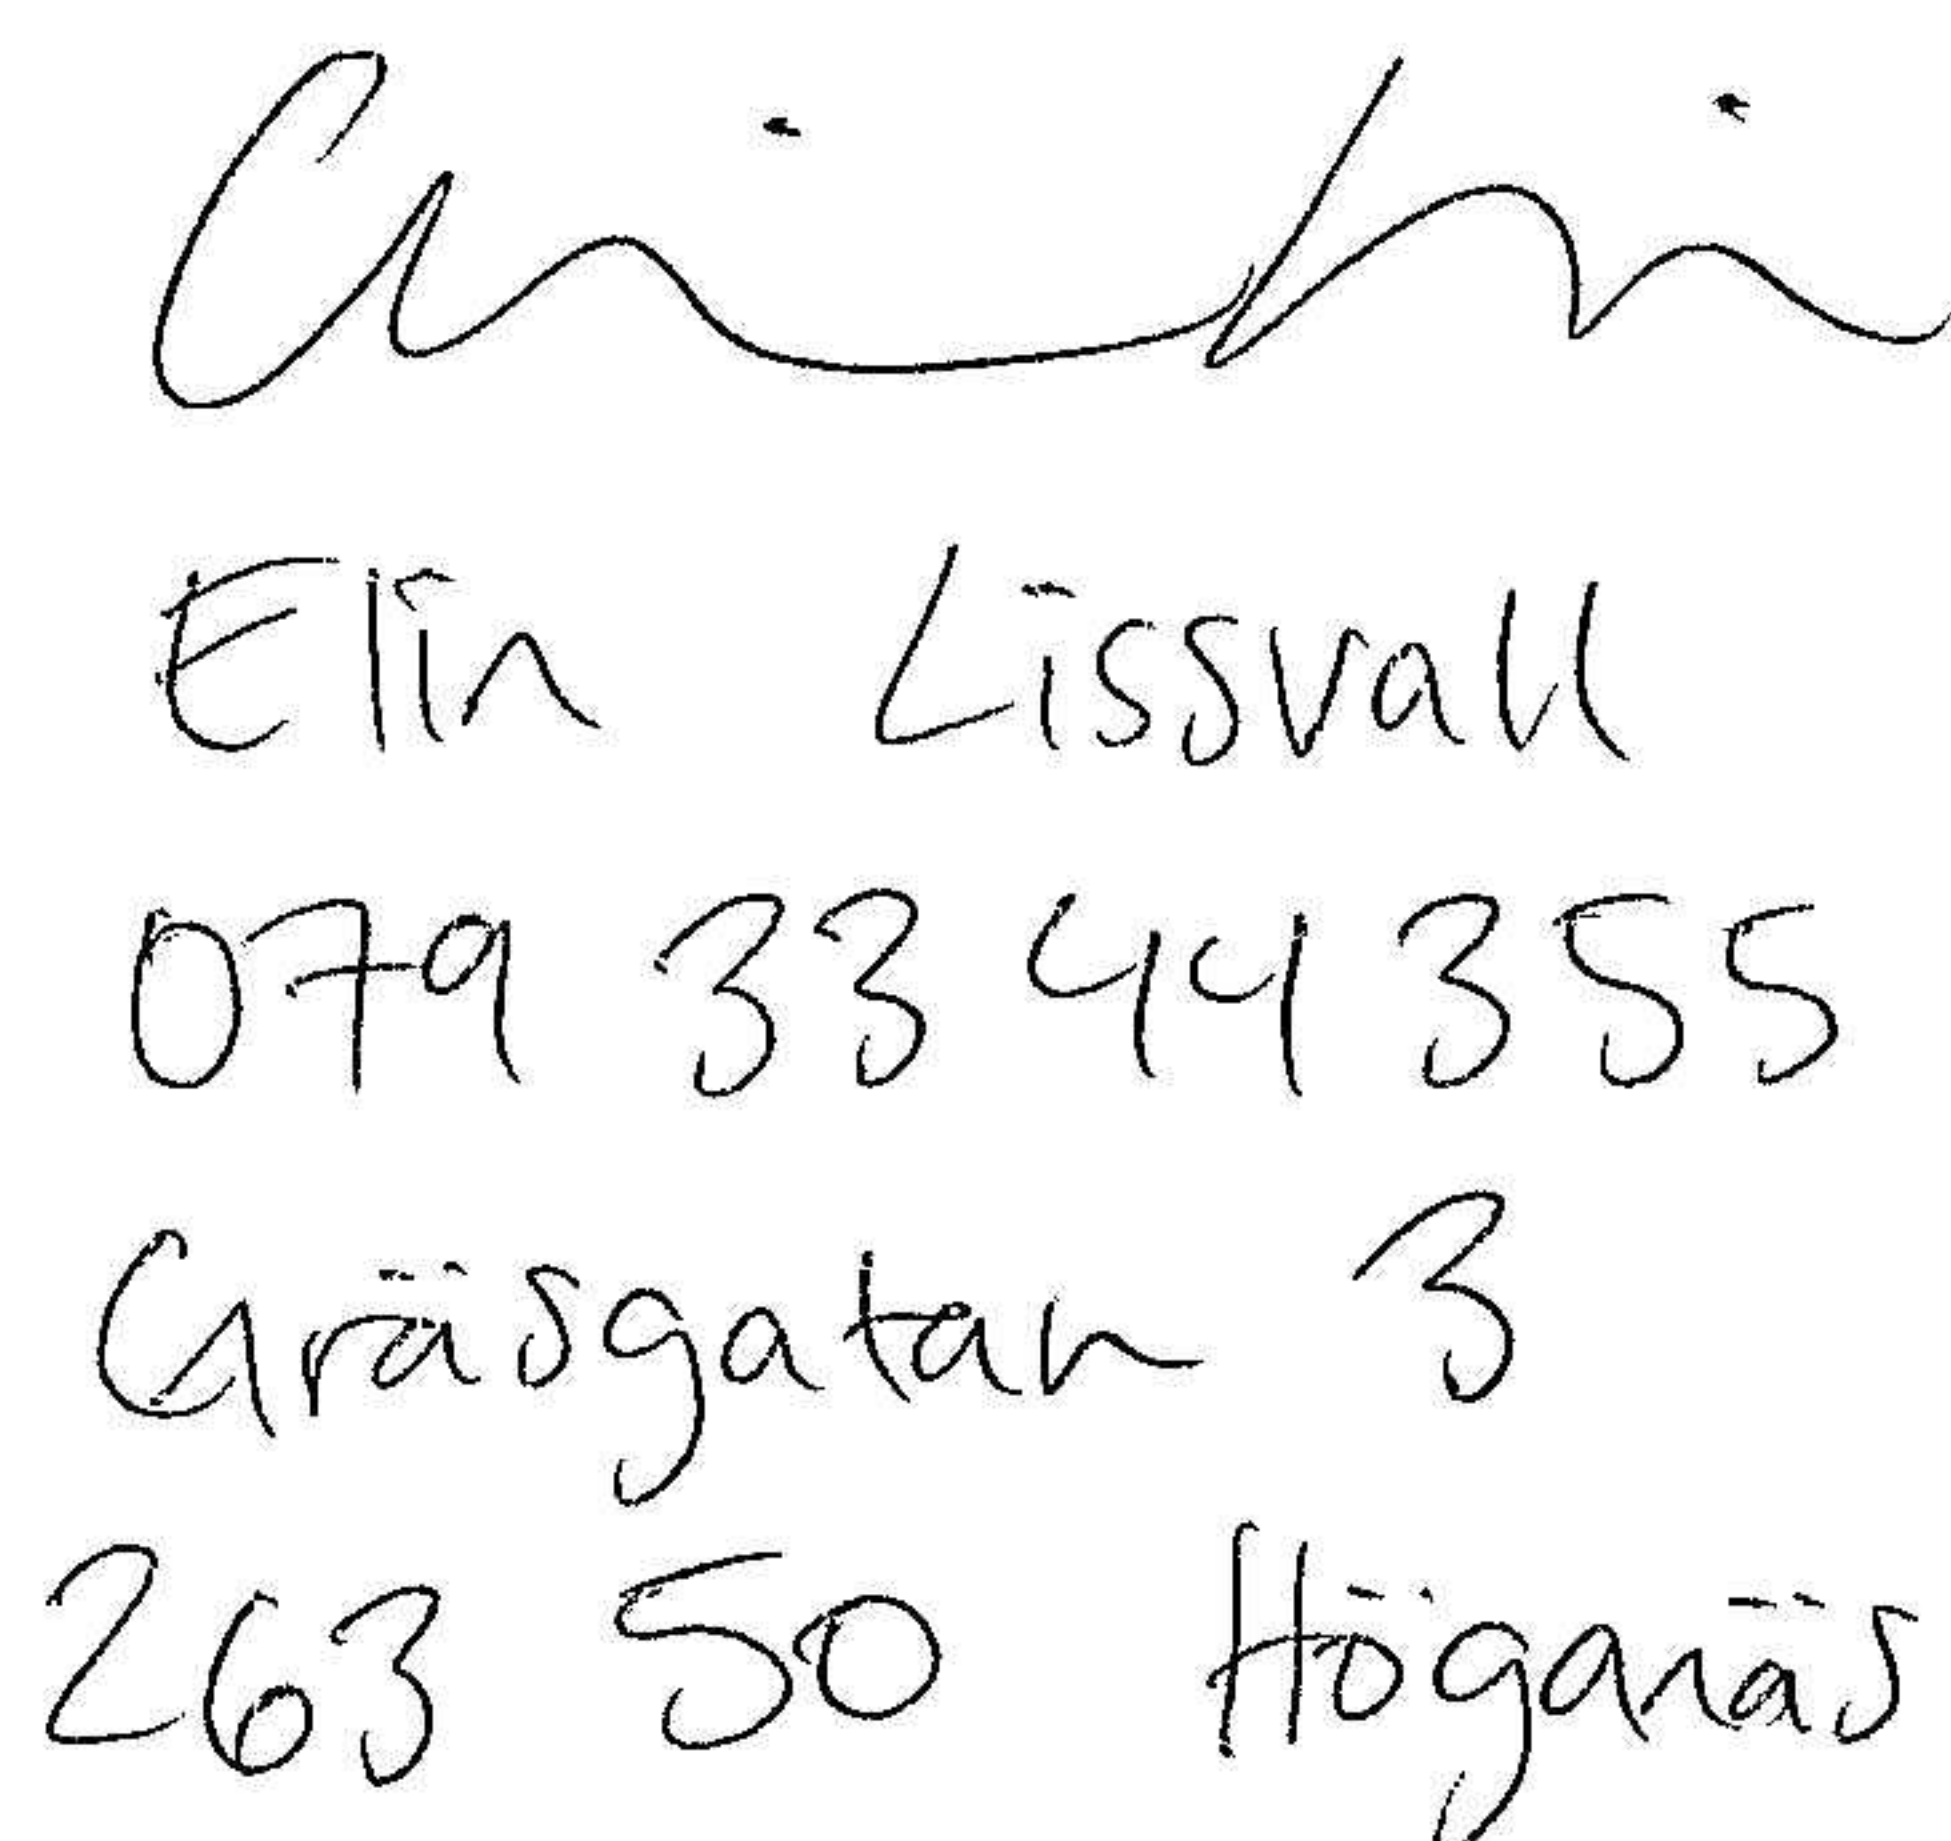 Elin Lissvall
079 33 44 355
Gräsgatan 3
263 50 Höganäs